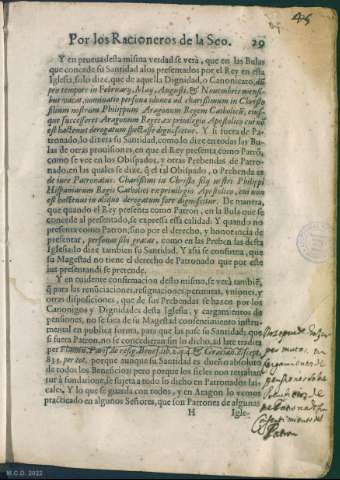 Por los Racioneros de la Seo. 29
Y en prueua desta misma verdad se verá, que en las Bulas
que concede su Santidad a los presentados por el Rey en esta
Iglesia, solo dize, que de aquella Dignidad, o Canonicato,
pro tempore in February, May, Augusti, & Nouembris mensi-
bus vacat, nominatio personæ idoneæ ad charissimum in Christo
filium nostrum Philippum Aragonum Regem Catholicū, eius-
que successores Aragonum Reges ex priuilegio Apostolico cui nō
est hactenus derogatum spectasse dignoscitur. Y si fuera de Pa-
tronado, lo dixera su Santidad, como lo dize en todas las Bu-
las de otras prouisiones, en que el Rey presenta como Patrō,
como se vee en los Obispados, y otras Prebendas de Patro-
nado, en las quales se dize, q̄ el tal Obispado, o Prebenda es
de iure Patronatus Charissimi in Christo filij nostri Philippi
Hispaniarum Regis Catholici ex priuilegio Apostolico, cui non
est hactenus in aliquo derogatum fore dignoscitur. De manera,
que quando el Rey presenta como Patron, en la Bula que se
concede al presentado, se expressa esta calidad. Y quando no
presenta como Patron, sino por el derecho, y honorencia de
presentar, como en las Prebendas desta
Iglesia lo dize tambien su Santidad. Y assi se consulta, que
su Magestad no tiene el derecho de Patronado que por este
ius presentandi se pretende.
Y en euidente confirmacion dello mismo, se verá tambiē,
q̄ para las renūciaciones, resignaciones, permutas, vniones, y
otras disposiciones, que de sus Prebendas se hazen por los
Canonigos y Dignidades desta Iglesia, y cargamentos de
pensiones, no se saca de su Magestad consentimiento instru-
mental en publica forma, para que las passe su Santidad; que
si fuera Patron, no se concedieran sin lo dicho, ad late traditos
per
833. per tot. porque aunque su Santidad es dueño absoluto
de todos los Beneficios; pero porque los fieles non resultas-
sen à fundaciones, se sujeta a todo lo dicho en Patronados lai-
cales. Y lo que se guarda con todos, y en Aragon lo vemos
practicado en algunos Señores, que son Patrones de algunas
H Igle-
M.C.D. 2022